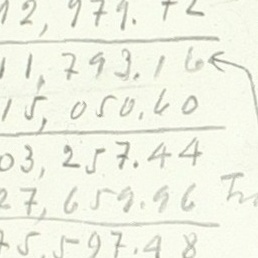 12, 979.72
11,793.16
15,050.60
03,257.44
27,659.96
75,597.48